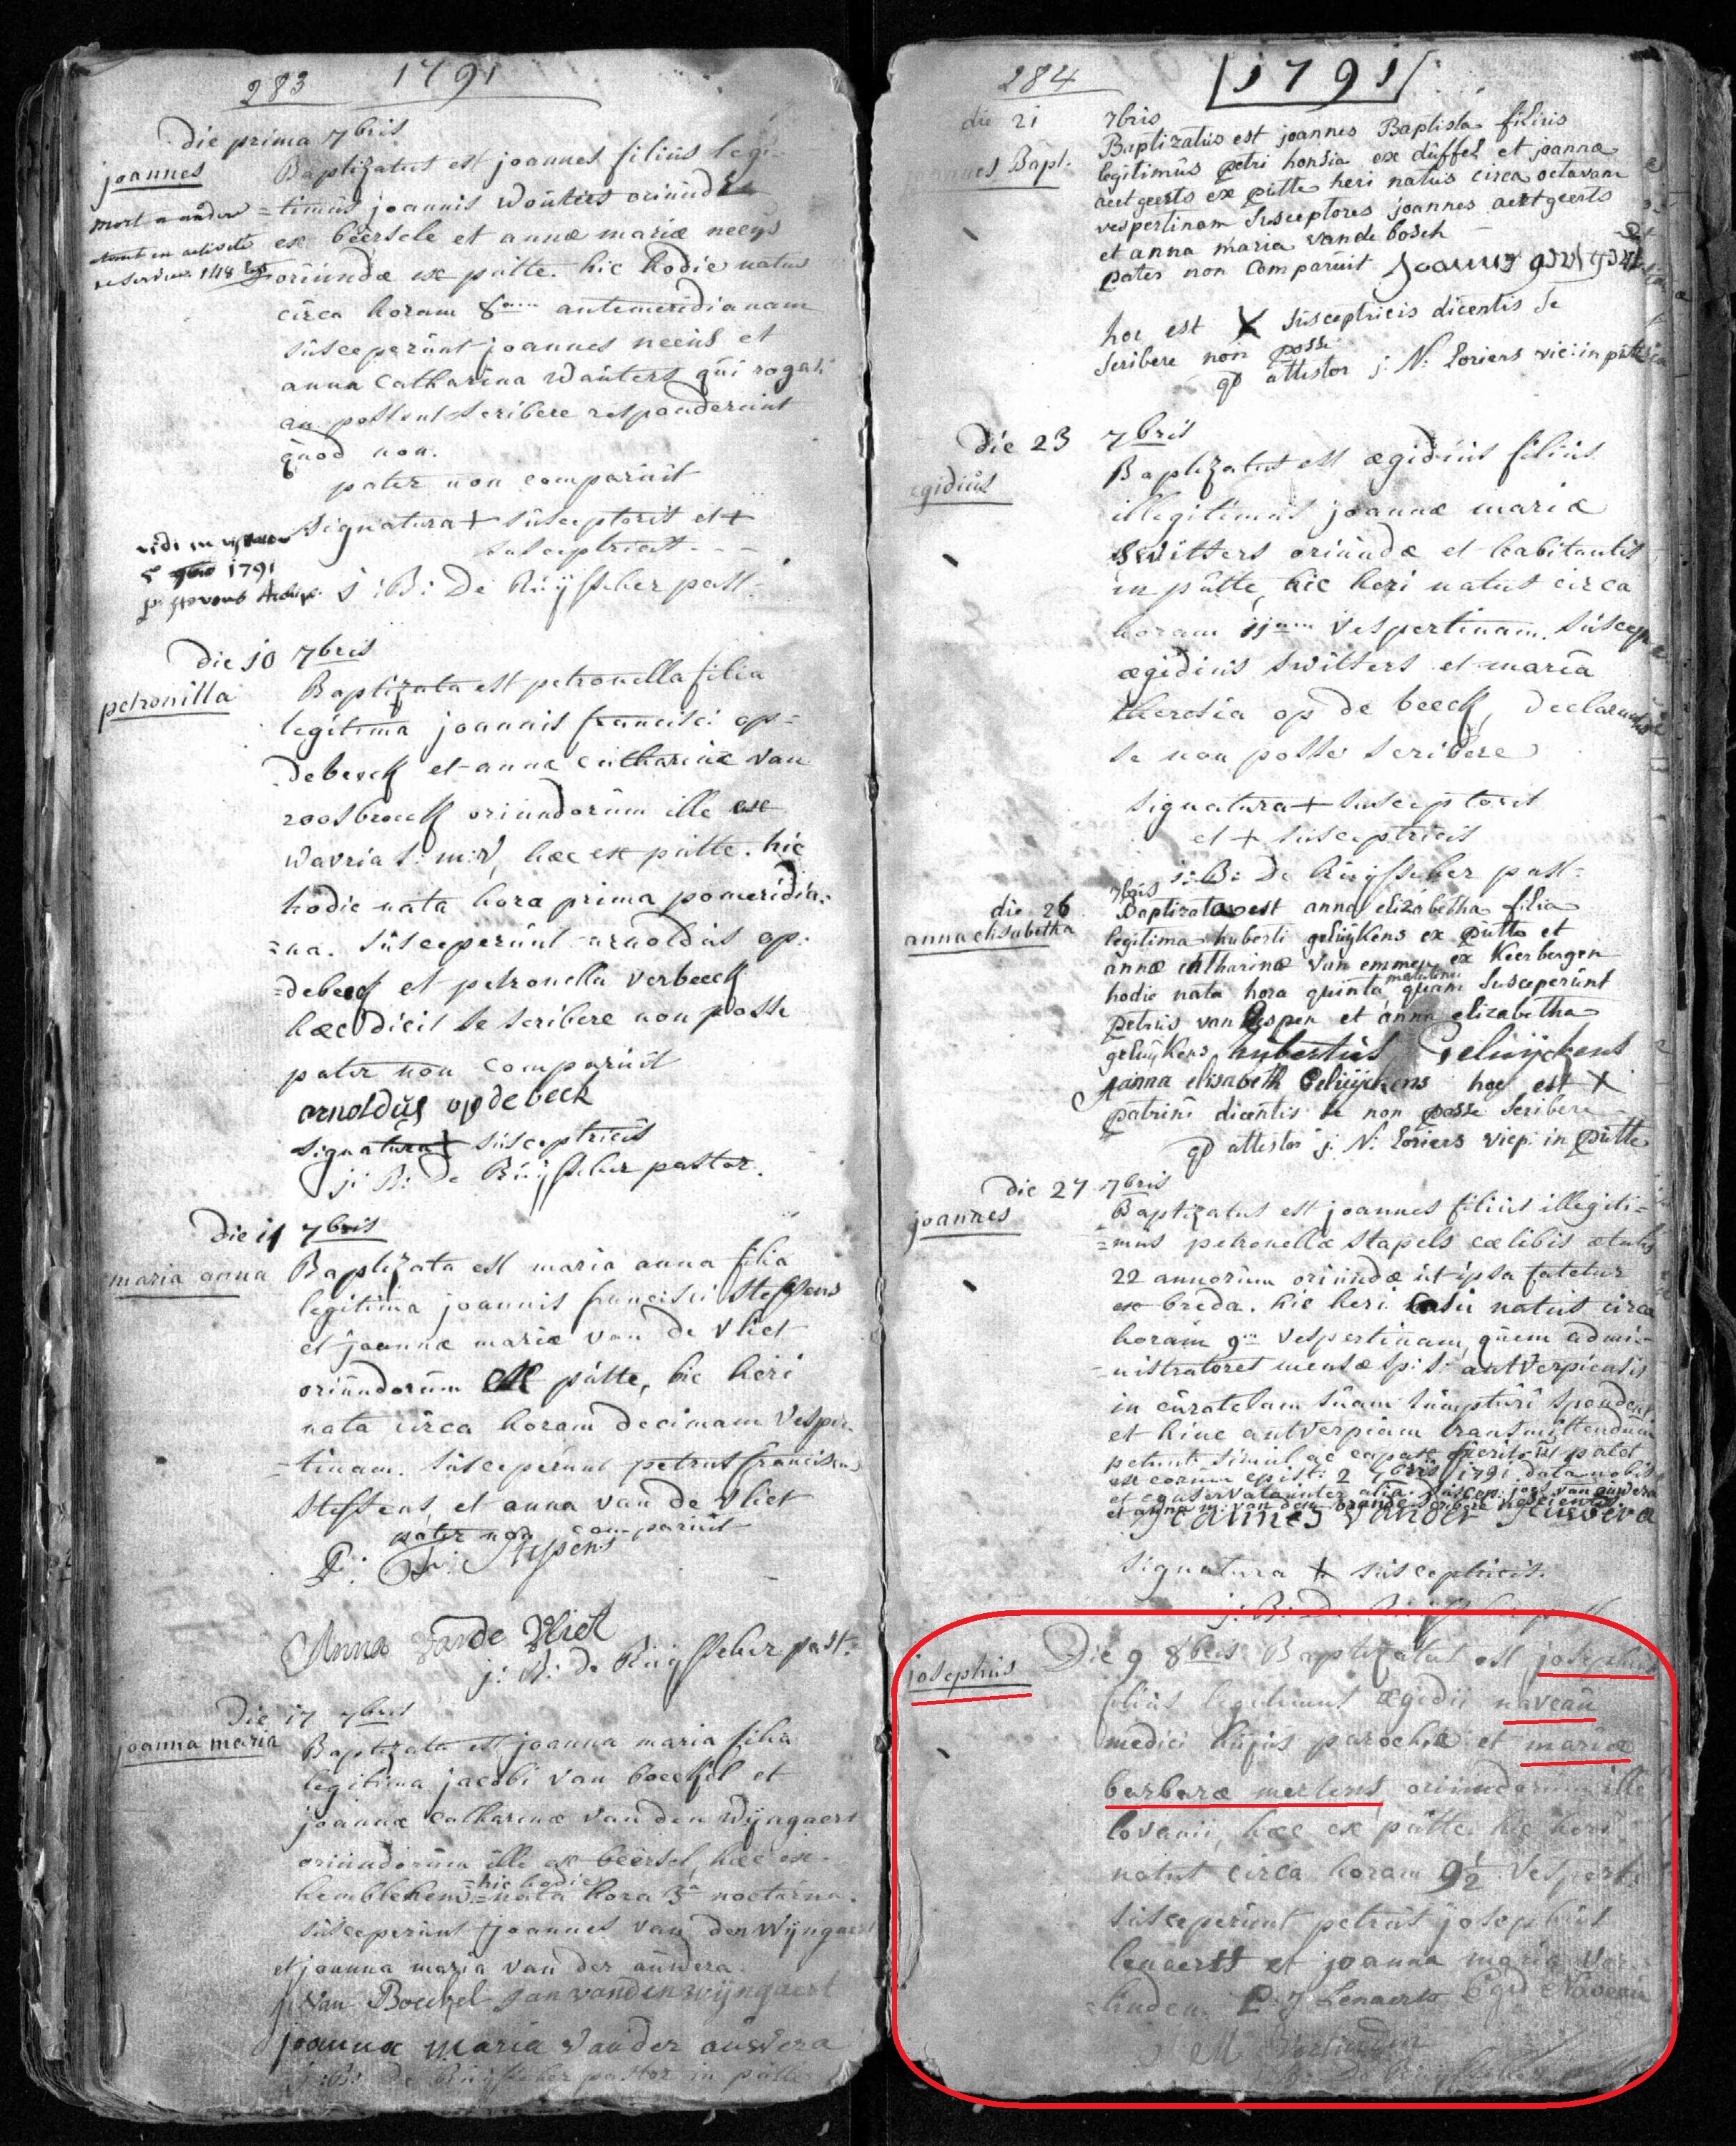 283 1791
die prima 7bris
joannes
Baptizatus est joannes filius legi-
=timus joannis Wouters oriund
ex beersele et annæ mariæ neeÿs
oriundæ ex pùtte. hic hodie natus
circa horam 8am antemeridianam
sùsceperùnt joannes neeùs et
anna Catharina Waùters qùi rogati
an possent scribere responderùnt
qùod non.
pater non comparùit
signatura + sùsceptoris et +
susceptricis
5 1791
j: B: De Rùÿsscher past:
die 10 7bris
petronilla
Baptizata est petronella filia
legitima joannis francisci op=
debeeck et annæ catharinæ van
roosbroeck oriùndorùm ille ex
Wavria s: m:, hæc ex pùtte. hic
hodie nata hora prima pomeridia:
=na. Sùsceperùnt arnoldùs op:
=debeeck et petronella verbeeck
hæc dicit se scribere non posse
pater non comparùit
arnoldùs opdebeeck
signatura + sùsceptricis
j: B: de Rùÿsscher pastor.
die 11 7bris
maria anna
Baptizata est maria anna filia
legitima joannis francisci steffens
et joannæ mariæ van de vliet
oriùndorùm ex pùtte, hic heri
nata circa horam decimam vesper
=tinam. Sùsceperùnt petrus franciscus
steffens et anna van de vliet
pater non comparùit
P: Fr: Steffens
Anna vande Vliet
j: B: de Rùÿsscher past:
Die 17 7bris
joanna maria
Baptizata est joanna maria filia
legitima jacobi van boeckel et
joannæ catharinæ van den wÿngaert
oriùndorùm ille ex beersel, hæc ex
hic hodie
nata hora 3a noctùrna.
sùsceperùnt joannes van den wÿngaert
et joanna maria van der aùwera.
j Van Boeckel jan vanden wijngaert
joanna maria vander aùwera
j: B: de Rùÿsscher pastor in pùtte
284 1791
die 21 7bris
Bapt.
Baptizatùs est joannes Baptista filiùs
legitimùs petri honsia ex dùffel et joannæ
aertgeerts ex pùtte heri natùs circa octavam
vespertinam sùsceptores joannes aertgeerts
et anna maria vande bosch
pater non comparùit
hoc est X sùsceptricis dicentis se
scribere non posse
qd attestor j: N: Loriers
die 23 7bris
egidiùs
Baptizatus est ægidiùs filius
illegitimus joannæ mariæ
switters oriùndæ et habitantis
in pùtte, hic heri natùs circa
horam 11am vespertinam. sùscep
ægidiùs switters et maria
theresia op de beeck, declarantes
se non posse scribere
signatura + sùsceptoris
et + sùsceptricis
j: B: De Rùÿsscher past:
die 26 7bris
anna elisabetha
Baptizata est anna elizabetha filia
legitima huberti gelùÿkens ex pùtte et
annæ catharinæ van emmen ex Keerbergen
hodie nata hora qùinta matutina quam sùsceperùnt
petrùs van Espen et anna elizabetha
gelùÿkens hùbertùs Gelùijckens
anna elisabeth Gelùÿckens hoc est X
patrini dicentis se non posse scribere
qd attestor j: N: Loriers vicp: in pùtte
die 27 7bris
joannes
Baptizatus est joannes filiùs illegiti=
=mus petronellæ stapels cælibis ætatis
22 annorùm oriùndæ ùt ipsa fatetur
ex breda. hic heri casù natùs circa
horam 9am vespertinam, qùem admi=
=nistratores mensæ sp: s: antverpiensis
in cùratelam sùam sùmptùri spondent
et hinc antverpiam transmittendùm
petunt, simul ac capax fùerit ùt patet
ex eorum epist: 2 7bris 1791 data nobis
et conservata inter alia. sùscep: joes van aùwera
et anna m: van den brande scribere nescientes
joannes vander Auwera
signatura + sùsceptricis.
j: B: De Rùÿsscher past
josephùs
Die 9 8bris Baptizatus est josephùs
filiùs legitimus ægidii naveaù
medici hùjùs parochiæ et mariæ
barbaræ mertens oriùndorùm ille
lovanii, hæc ex pùtte. hic heri
natùs circa horam 9½ vespert:
sùsceperùnt petrùs josephùs
lenaerts et joanna maria ver
=linden. P J Lenaerts Egid Naveaù
J M Verlinden
j: B: De Rùÿsscher